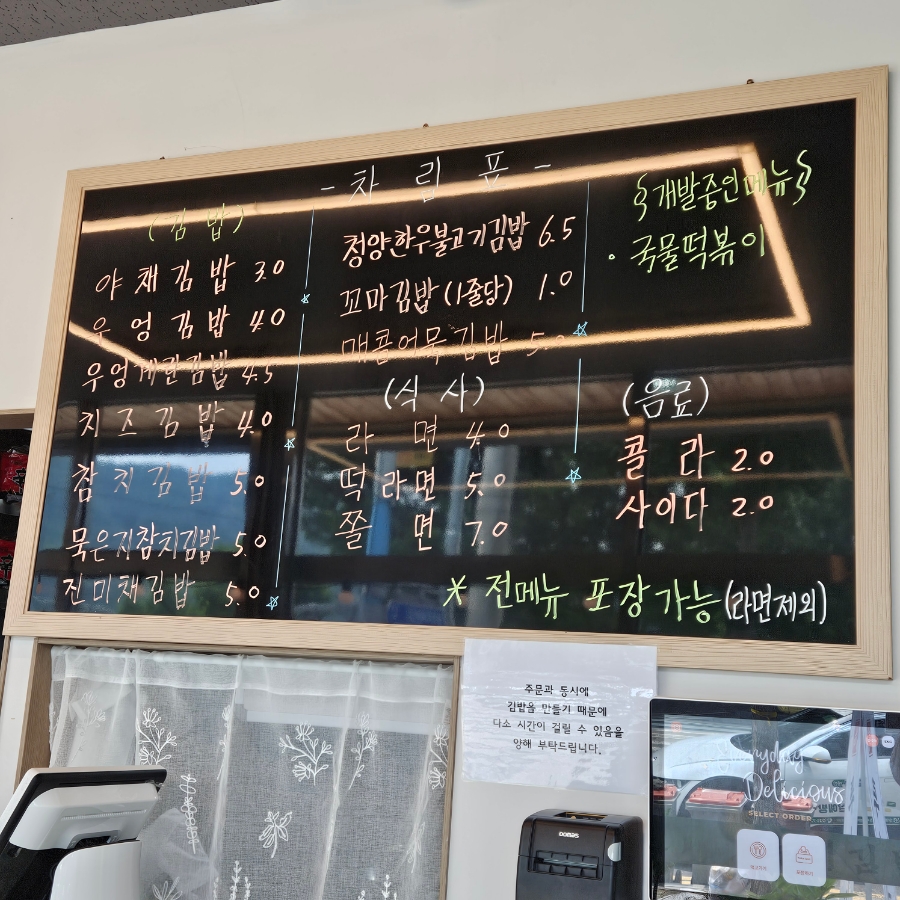 - 차 림 표 -
(김 밥)
야 채 김 밥 3.0
우 엉 김 밥 4.0
우엉계란김밥 4.5
치 즈 김 밥 4.0
참 치 김 밥 5.0
묵은지참치김밥 5.0
진미채김밥 5.0
청양한우불고기김밥 6.5
꼬마김밥 (1줄당) 1.0
매콤어묵김밥 5.0
(식 사)
라 면 4.0
떡 라 면 5.0
쫄 면 7.0
개발중인메뉴
· 국물떡볶이
(음료)
콜 라 2.0
사이다 2.0
* 전메뉴 포장가능 (라면제외)
주문과 동시에
김밥을 만들기 때문에
다소 시간이 걸릴 수 있음을
양해 부탁드립니다.
Everyday
Delicious
SELECT ORDER